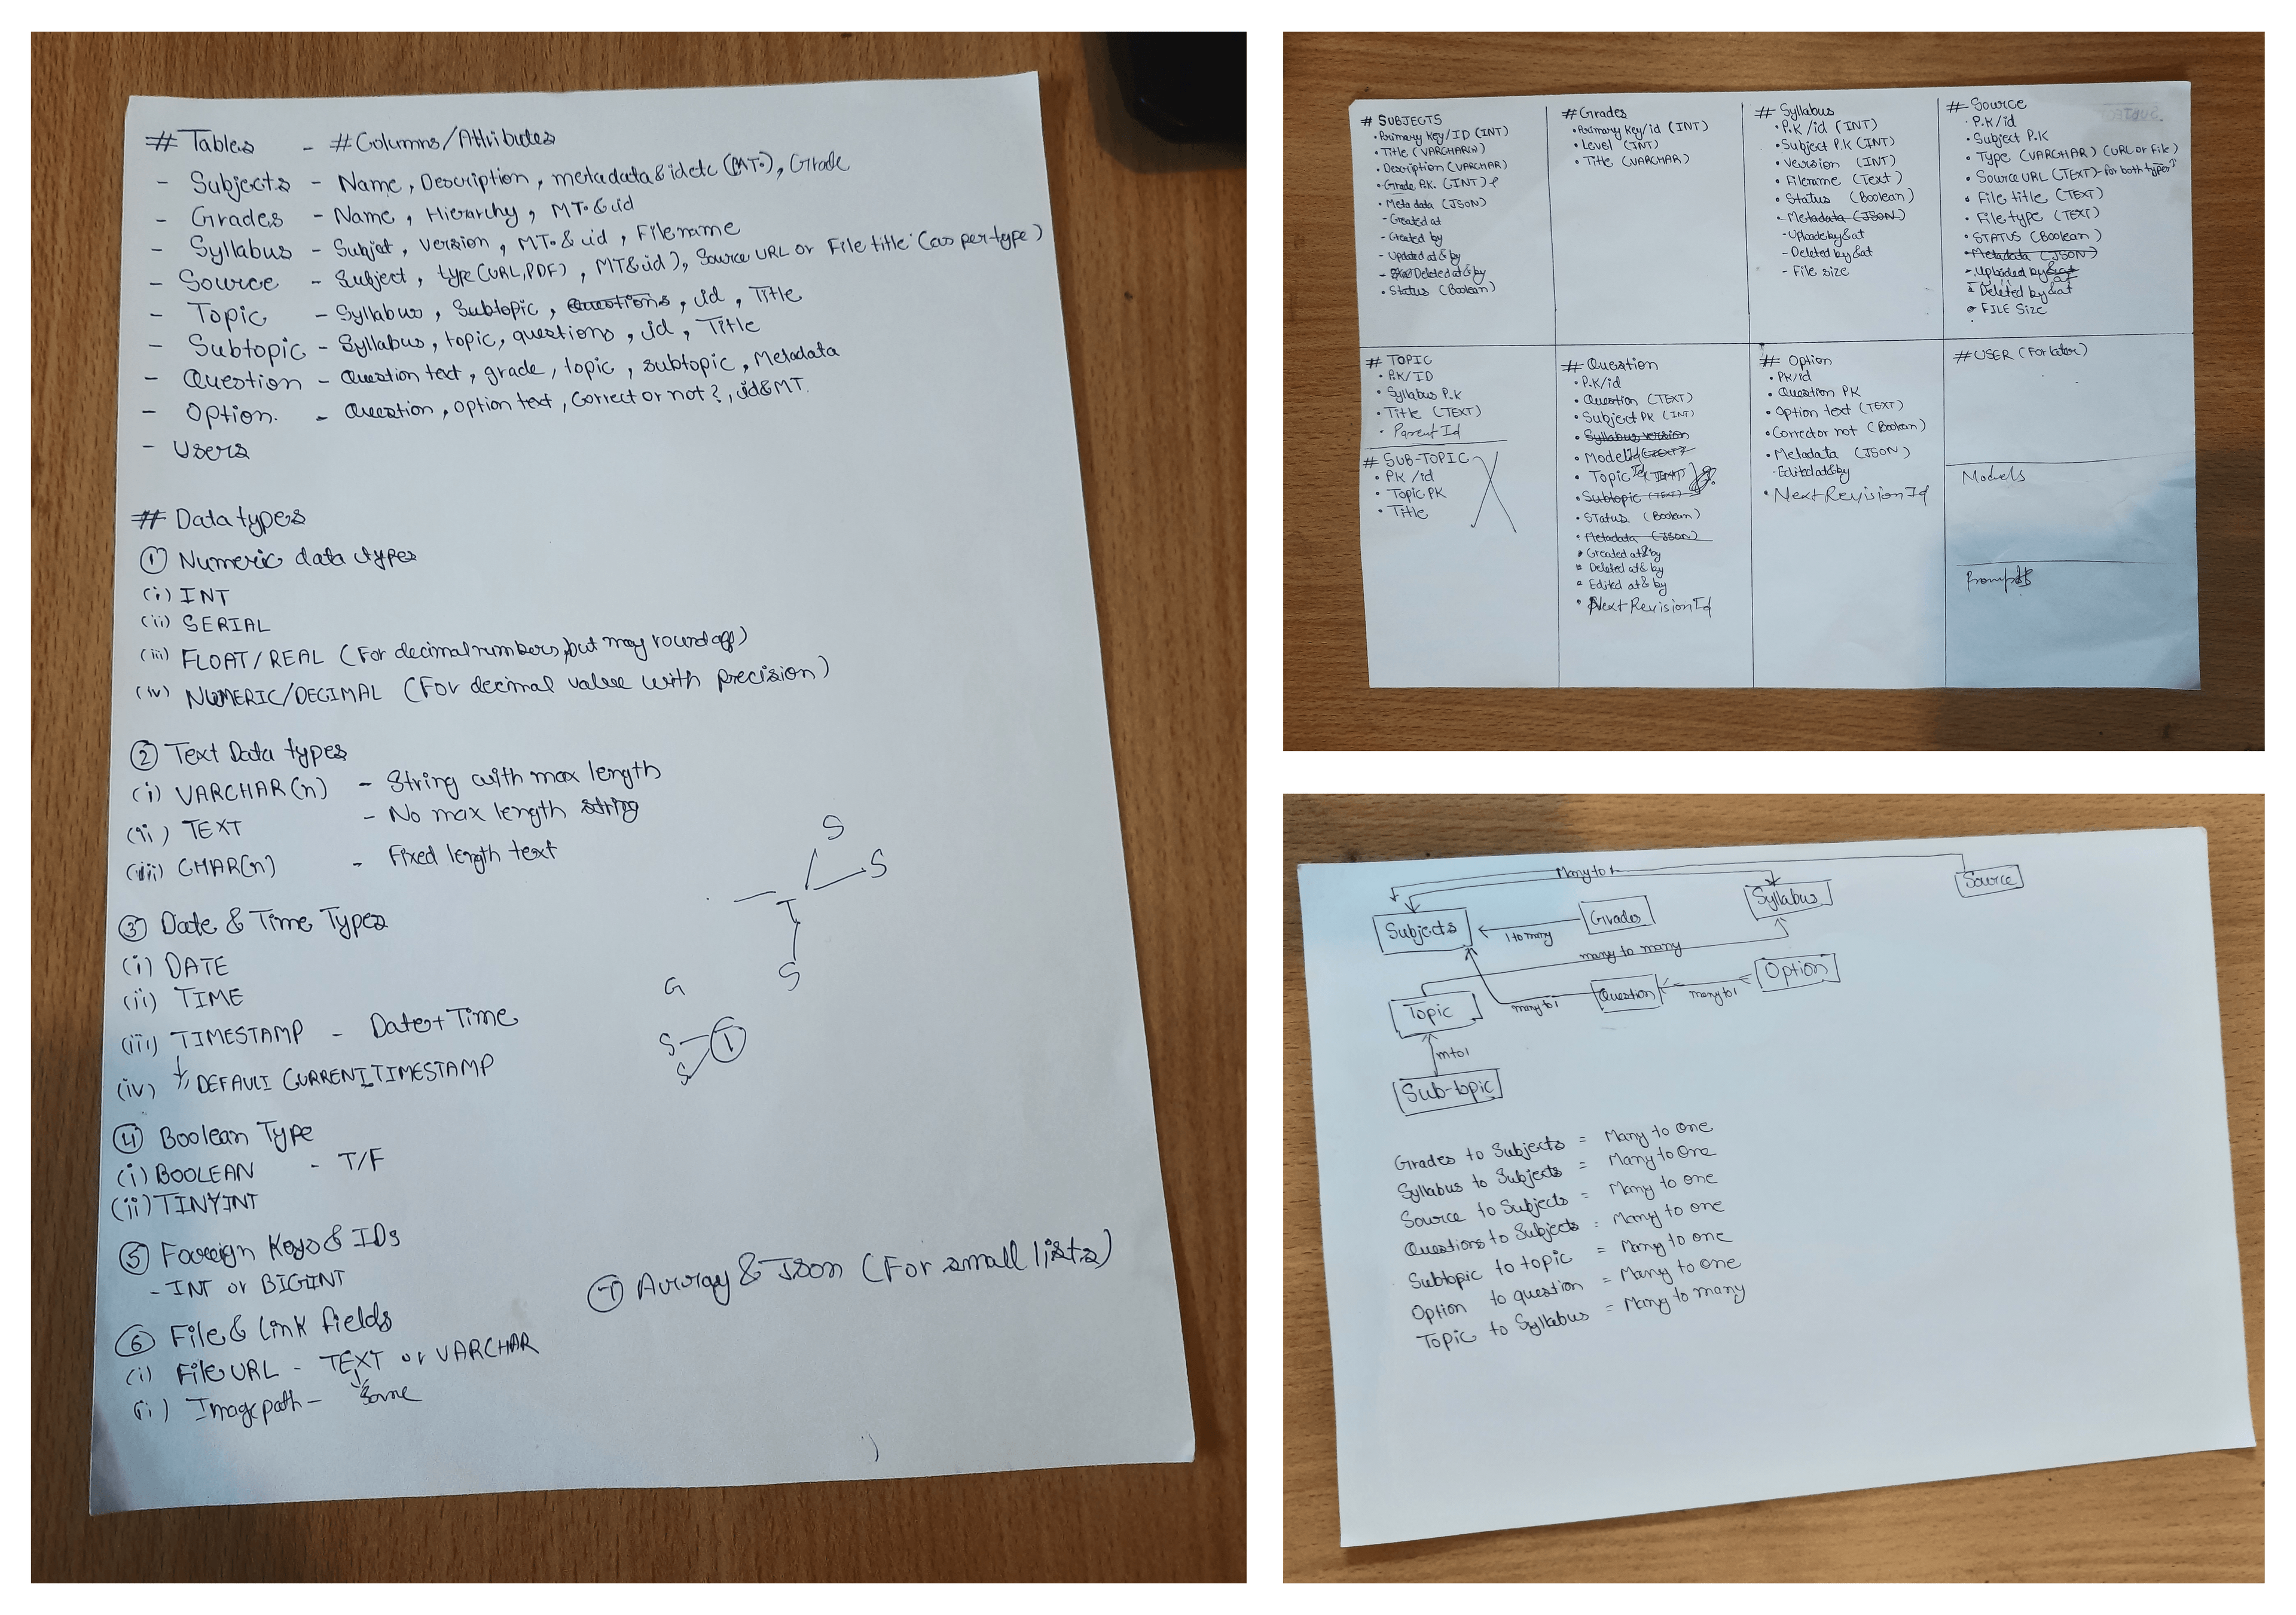 # Tables - # Columns/Attributes
- Subjects - Name, Description, metadata & id etc (MT.), Grade
- Grades - Name, Hierarchy, MT. & id
- Syllabus - Subject, version, MT. & id, Filename
- Source - Subject, type (URL, PDF), MT & id), Source URL or File title (as per type)
- Topic - Syllabus, Subtopic, Questions, id, Title
- Subtopic - Syllabus, topic, questions, id, Title
- Question - Question text, grade, topic, subtopic, Metadata
- Option. - Question, option text, Correct or not?, id & MT.
- Users
# Data types
① Numeric data types
(i) INT
(ii) SERIAL
(iii) FLOAT/REAL (For decimal numbers, but may round off)
(iv) NUMERIC/DECIMAL (For decimal value with precision)
② Text Data types
(i) VARCHAR(n) - String with max length
(ii) TEXT - No max length string
(iii) CHAR(n) - Fixed length text
S
S
T
S
③ Date & Time Types
(i) DATE
(ii) TIME
(iii) TIMESTAMP - Date + Time
(iv) DEFAULT CURRENT_TIMESTAMP
G
S T
S
④ Boolean Type
(i) BOOLEAN - T/F
(ii) TINYINT
⑤ Foreign Keys & IDs
- INT or BIGINT
⑥ File & Link fields
(i) File URL - TEXT or VARCHAR
(ii) Image path - Same
⑦ Array & Json (For small lists)
# SUBJECTS
• Primary Key/ID (INT)
• Title (VARCHAR(n))
• Description (VARCHAR)
• Grade P.K. (INT)
• Meta data (JSON)
- Created at
- Created by
- Updated at & by
- Deleted at & by
• Status (Boolean)
# Grades
• Primary Key/id (INT)
• Level (INT)
• Title (VARCHAR)
# Syllabus
• P.K/id (INT)
• Subject P.K (INT)
• Version (INT)
• Filename (Text)
• Status (Boolean)
• Metadata (JSON)
- Uploade by & at
- Deleted by & at
- File size
# Source
• P.K/id
• Subject P.K
• Type (VARCHAR) (URL or File)
• Source URL (TEXT) - for both types
• File title (TEXT)
• File type (TEXT)
• STATUS (Boolean)
• Metadata (JSON)
- Uploaded by & at
• Deleted by & at
• FILE Size
# TOPIC
• P.K/ID
• Syllabus P.K
• Title (TEXT)
• Parent Id
# SUB-TOPIC
• PK/id
• Topic PK
• Title
# Question
• P.K/id
• Question (TEXT)
• Subject PK (INT)
• Syllabus version
• Model Id (TEXT)
• Topic Id
• Subtopic (TEXT)
• Status (Boolean)
• Metadata (JSON)
• Created at & by
• Deleted at & by
• Edited at & by
• Next Revision Id
# Option
• PK/id
• Question PK
• Option text (TEXT)
• Correct or not (Boolean)
• Metadata (JSON)
- Edited at & by
• Next Revision Id
# USER (For later)
Models
Prompts
Many to 1
Source
Syllabus
Grades
Subjects
1 to many
many to many
Option
Question
many to 1
many to 1
Topic
m to 1
Sub-topic
Grades to Subjects = Many to one
Syllabus to Subjects = Many to One
Source to Subjects = Many to one
Questions to Subjects = Many to one
Subtopic to topic = Many to one
Option to question = Many to one
Topic to Syllabus = Many to many